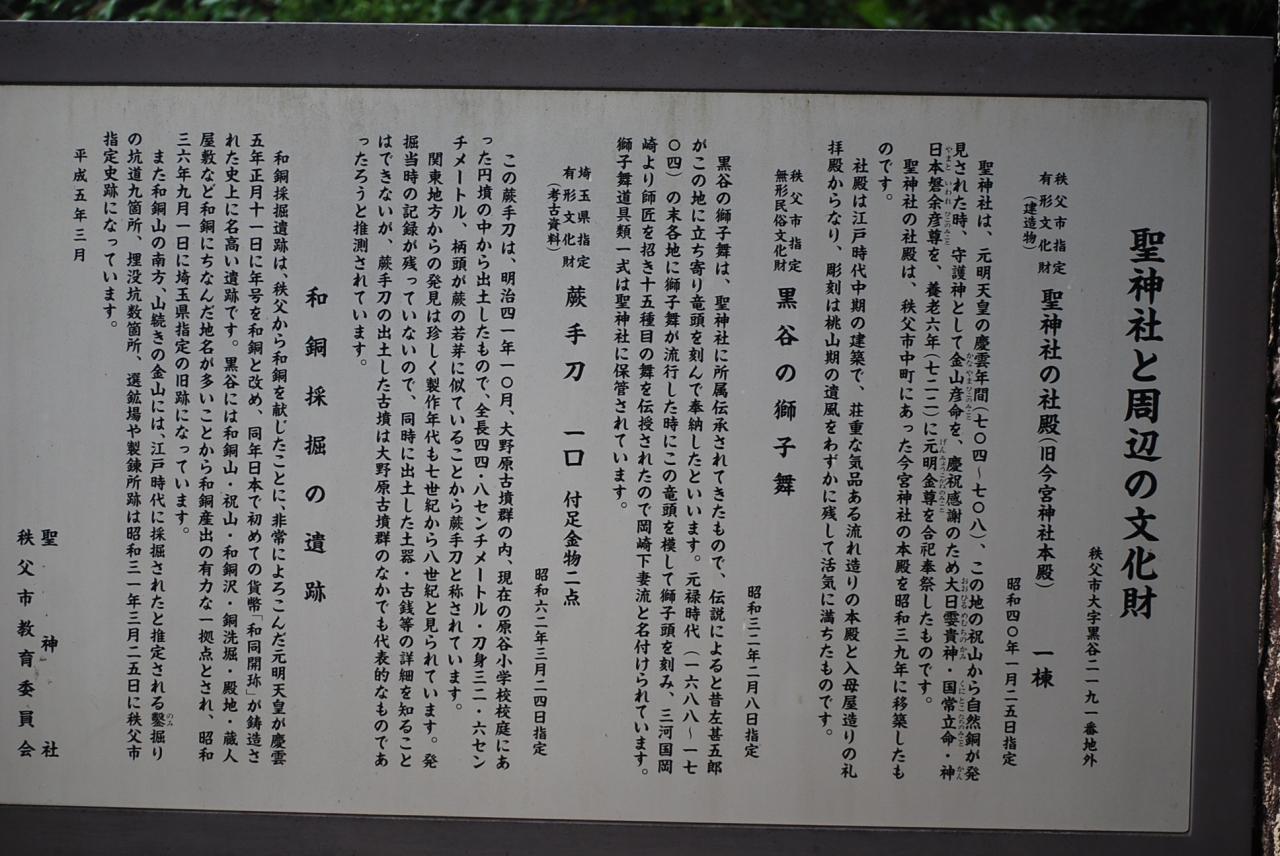 聖神社と周辺の文化財
秩父市大字黒谷二一九一番地外
秩父市指定
有形文化財
(建造物)
聖神社の社殿(旧今宮神社本殿) 一棟
昭和四〇年一月二五日指定
聖神社は、元明天皇の慶雲年間(七〇四～七〇八)、この地の祝山から自然銅が発
見された時、守護神として金山彦命を、慶祝感謝のため大日孁貴神・国常立命・神
日本磐余彦尊を、養老六年(七二二)に元明金尊を合祀奉祭したものです。
聖神社の社殿は、秩父市中町にあった今宮神社の本殿を昭和三九年に移築したも
のです。
社殿は江戸時代中期の建築で、荘重な気品ある流れ造りの本殿と入母屋造りの礼
拝殿からなり、彫刻は桃山期の遺風をわずかに残して活気に満ちたものです。
秩父市指定
無形民俗文化財
黒谷の獅子舞
昭和三二年二月八日指定
黒谷の獅子舞は、聖神社に所属伝承されてきたもので、伝説によると昔左甚五郎
がこの地に立ち寄り竜頭を刻んで奉納したといいます。元禄時代(一六八八～一七
〇四)の末各地に獅子舞が流行した時にこの竜頭を模して獅子頭を刻み、三河国岡
崎より師匠を招き十五種目の舞を伝授されたので岡崎下妻流と名付けられています。
獅子舞道具類一式は聖神社に保管されています。
埼玉県指定
有形文化財
(考古資料)
蕨手刀 一口 付足金物二点
昭和六二年三月二四日指定
この蕨手刀は、明治四一年一〇月、大野原古墳群の内、現在の原谷小学校校庭にあ
った円墳の中から出土したもので、全長四四・八センチメートル・刀身三二・六セン
チメートル、柄頭が蕨の若芽に似ていることから蕨手刀と称されています。
関東地方からの発見は珍しく製作年代も七世紀から八世紀と見られています。発
掘当時の記録が残っていないので、同時に出土した土器・古銭等の詳細を知ること
はできないが、蕨手刀の出土した古墳は大野原古墳群のなかでも代表的なものであ
ったろうと推測されています。
和銅採掘の遺跡
和銅採掘遺跡は、秩父から和銅を献じたことに、非常によろこんだ元明天皇が慶雲
五年正月十一日に年号を和銅と改め、同年日本で初めての貨幣「和同開珎」が鋳造さ
れた史上に名高い遺跡です。黒谷には和銅山・祝山・和銅沢・銅洗堀・殿地・蔵人
屋敷など和銅にちなんだ地名が多いことから和銅産出の有力な一拠点とされ、昭和
三六年九月一日に埼玉県指定の旧跡になっています。
また和銅山の南方、山続きの金山には、江戸時代に採掘されたと推定される鑿掘り
の坑道九箇所、埋没坑数箇所、選鉱場や製錬所跡は昭和三一年三月二五日に秩父市
指定史跡になっています。
平成五年三月
聖神社
秩父市教育委員会